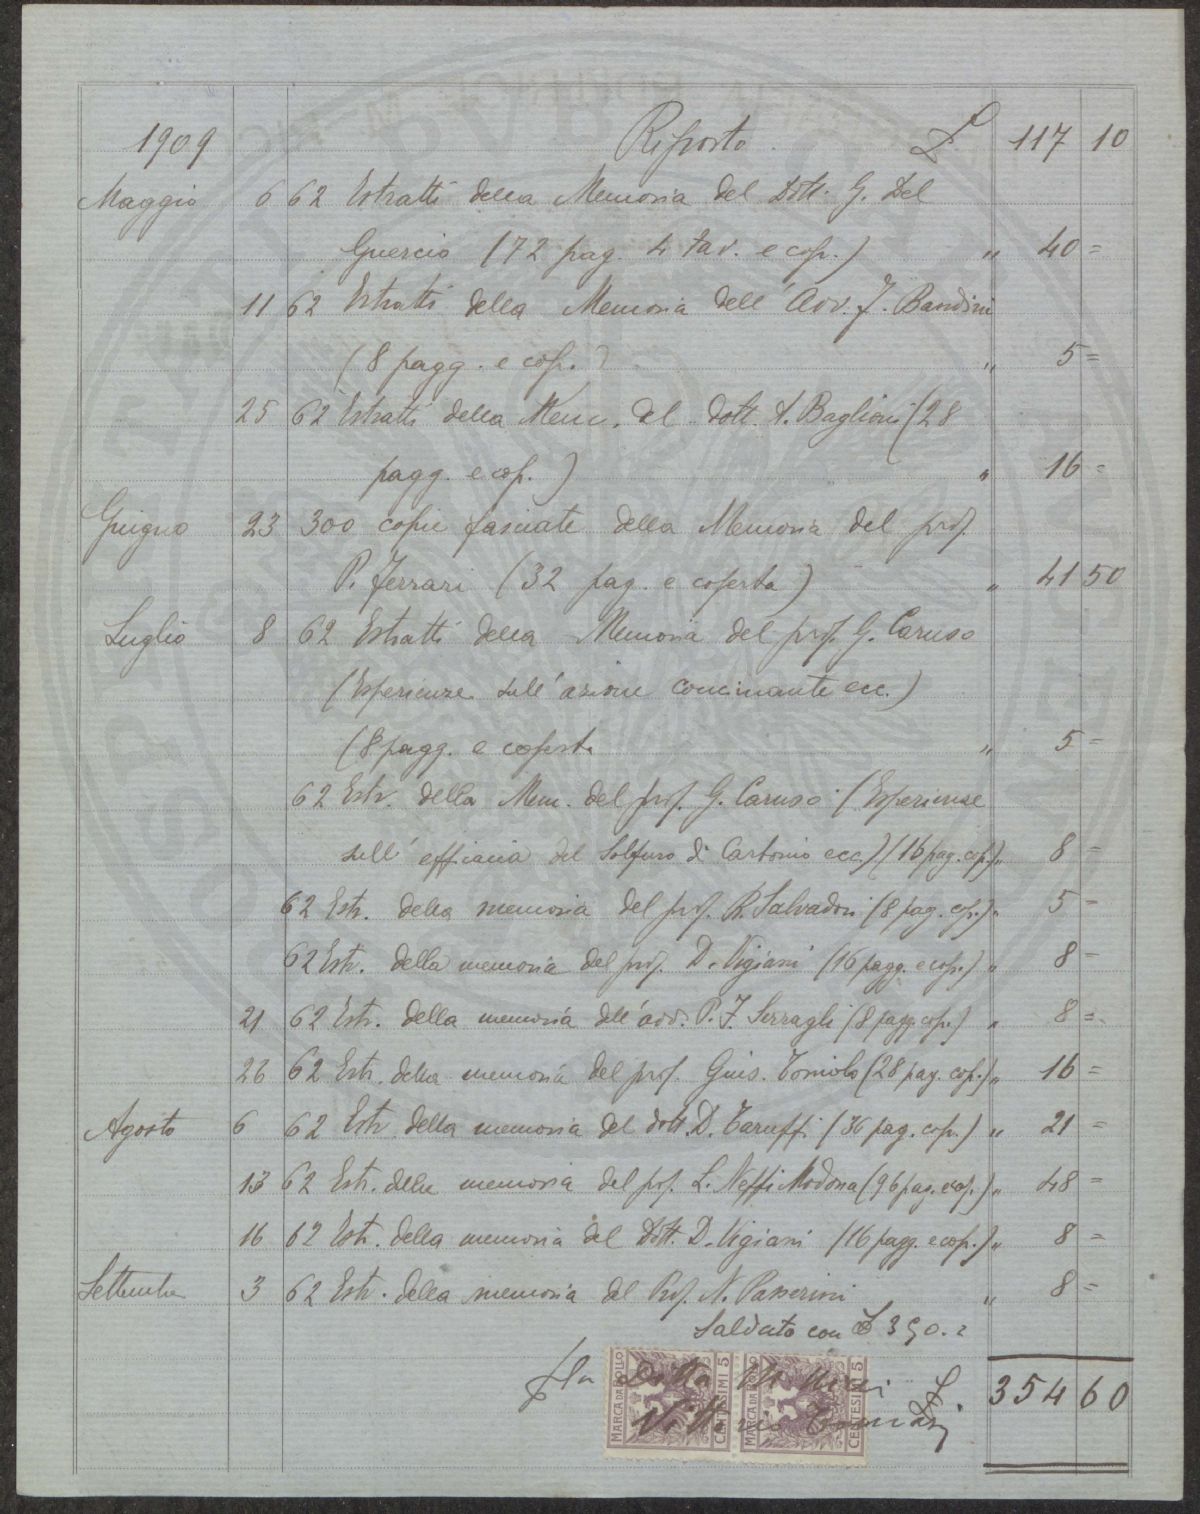 1909 Riporto. L 117 10
Maggio 6 62 Estratti della Memoria del Dott. G. Del
Guercio (72 pag. 4 tav. e cop.) " 40 =
11 62 Estratti della Memoria dell'Avv. J. Bandini
(8 pagg. e cop.) " 5 =
25 62 Estratti della Mem. del dott. A. Baglioni (28
pagg. e cop.) " 16 =
Giugno 23 300 copie fasciate della Memoria del prof.
P. Ferrari (32 pag. e coperta) " 41 50
Luglio 8 62 Estratti della Memoria del prof. G. Caruso
(Esperienze sull'azione concimante ecc.)
(8 pagg. e coperta " 5 =
62 Estr. della Mem. del prof. G. Caruso (Esperienze
sull'efficacia del Solfuro di Carbonio ecc.) (16 pag. cop.) " 8 =
62 Estr. della memoria del prof. R. Salvadori (8 pag. cop.) " 5 =
62 Estr. della memoria del prof. D. Vigiani (16 pagg. e cop.) " 8 =
21 62 Estr. della memoria dell'avv. P. F. Serragli (8 pagg. cop.) " 8 =
26 62 Estr. della memoria del prof. Gius. Toniolo (28 pag. cop.) " 16 =
Agosto 6 62 Estr. della memoria del dott. D. Taruffi (36 pag. cop.) " 21 =
13 62 Estr. della memoria del prof. L. Neppi Modona (96 pag. e cop.) " 48 =
16 62 Estr. della memoria del Dott. D. Vigiani (16 pagg. e cop.) " 8 =
Settembre 3 62 Estr. della memoria del Prof. N. Passerini " 8 =
Saldato con L 350. =
p la Ditta M. Ricci L 354 60
Vittorio
MARCA DA BOLLO CENTESIMI 5
MARCA DA BOLLO CENTESIMI 5